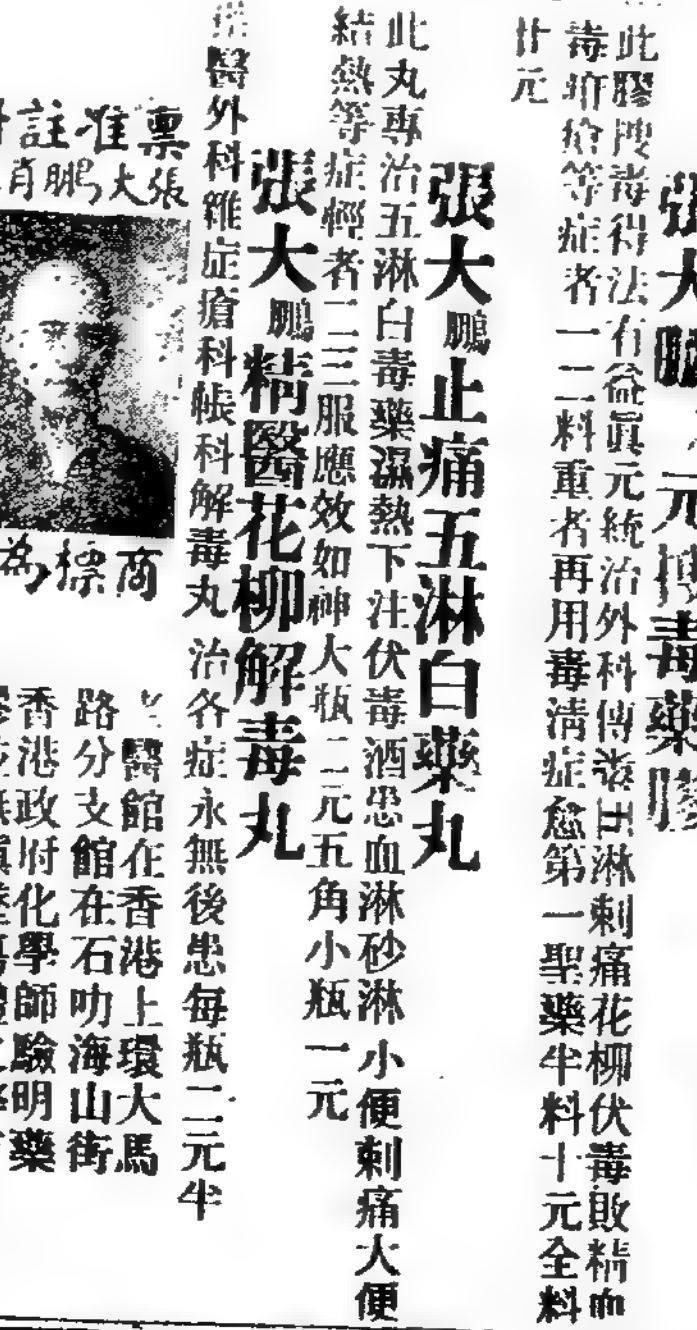 張大鵬 元搜毒藥膠
此膠搜毒得法有益眞元統治外科傳染白淋刺痛花柳伏毒敗精血
毒疳疮等症者一二料重者再用毒淸症愈第一聖藥半料十元全料
廿元
張大鵬止痛五淋白藥丸
此丸專治五淋白毒藥濕熱下注伏毒酒患血淋砂淋小便刺痛大便
結熱等症輕者二三服應效如神大瓶二元五角小瓶一元
張大鵬精醫花柳解毒丸
醫外科雜症瘡科帳科解毒丸治各症永無後患每瓶二元半
稟准註
張大鵬肖
商標為
醫館在香港上環大馬
路分支館在石叻海山街
香港政府化學師驗明藥